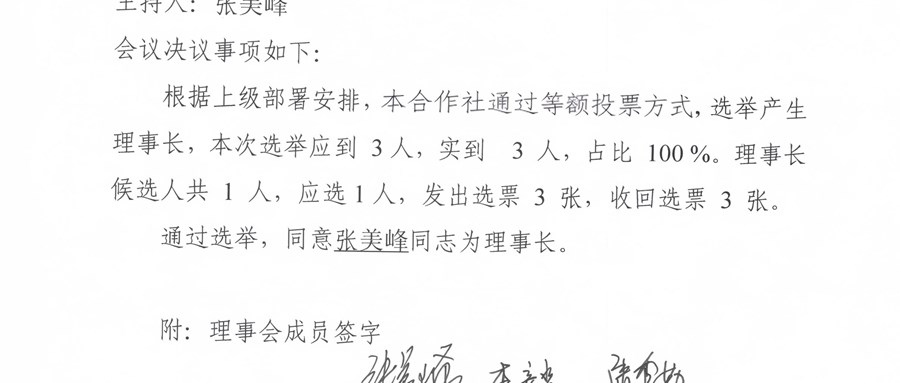 主持人：张美峰
会议决议事项如下：
根据上级部署安排，本合作社通过等额投票方式，选举产生
理事长，本次选举应到 3人，实到 3 人，占比 100%。理事长
候选人共 1 人，应选1人，发出选票 3 张，收回选票 3 张。
通过选举，同意张美峰同志为理事长。
附：理事会成员签字
张美峰